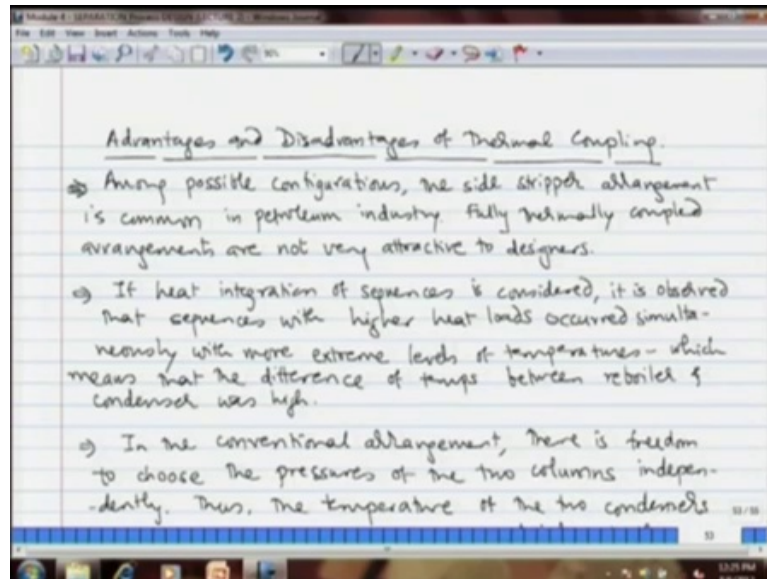 Module 4 - SEPARATION Process DESIGN (LECTURE 2) - Windows Journal
File Edit View Insert Actions Tools Help
Advantages and Disadvantages of Thermal Coupling.
⇒ Among possible configurations, the side stripper arrangement
is common in petroleum industry. Fully thermally coupled
arrangements are not very attractive to designers.
⇒ If heat integration of sequences is considered, it is observed
that sequences with higher heat loads occurred simulta-
neously with more extreme levels of temperatures - which
means that the difference of temps between reboiler &
condenser was high.
⇒ In the conventional arrangement, there is freedom
to choose the pressures of the two columns indepen-
-dently. Thus, the temperature of the two condensers
53/55
53
12:25 PM